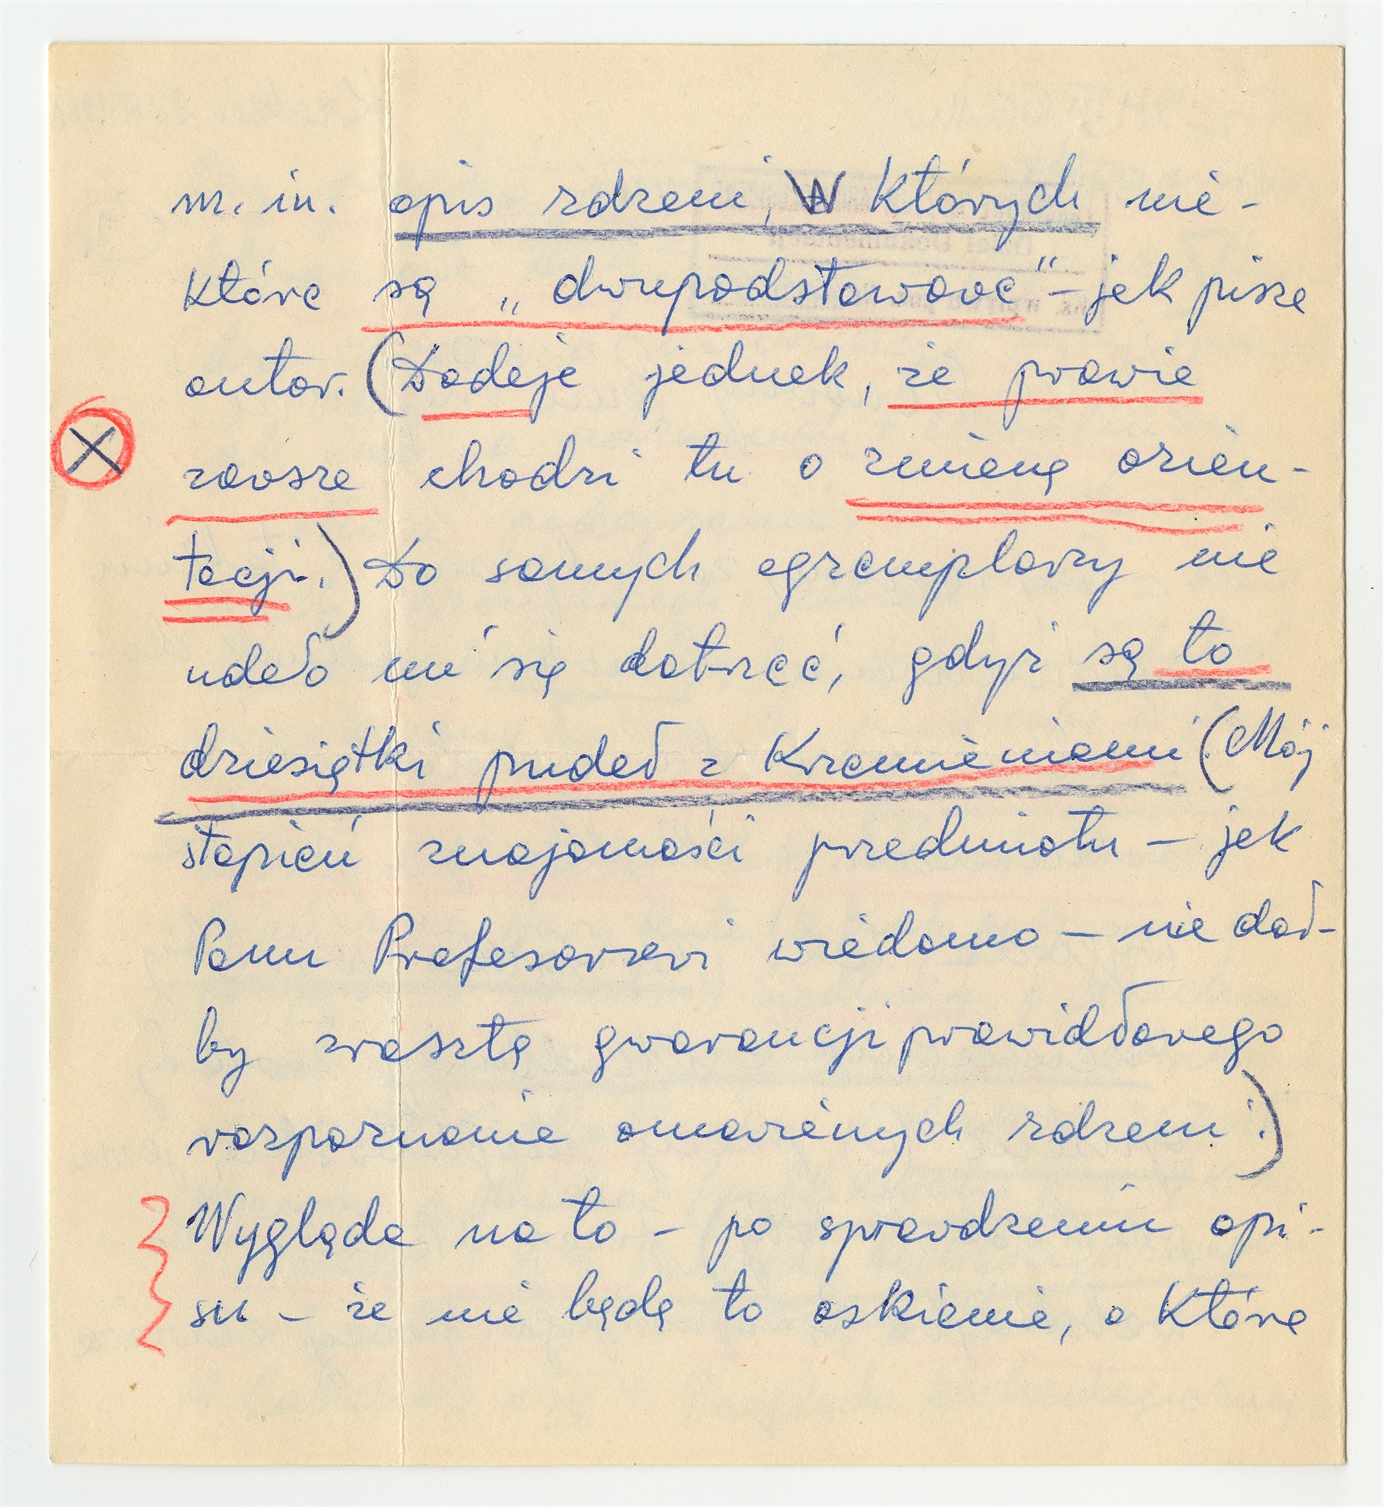 m. in. opis rdzeni, w których nie-
które są „dwupodstawowe" – jak pisze
autor. (Dodaje jednak, że prawie
zawsze chodzi tu o zmianę orien-
tacji.) Do samych egzemplarzy nie
udało mi się dotrzeć, gdyż są to
dziesiątki pudeł z krzemieniami. (Mój
stopień znajomości przedmiotu – jak
Panu Profesorowi wiadomo – nie dał-
by zresztą gwarancji prawidłowego
rozpoznanie omawianych rdzeni.)
Wygląda na to – po sprawdzeniu opi-
su – że nie będą to oskienie, o które